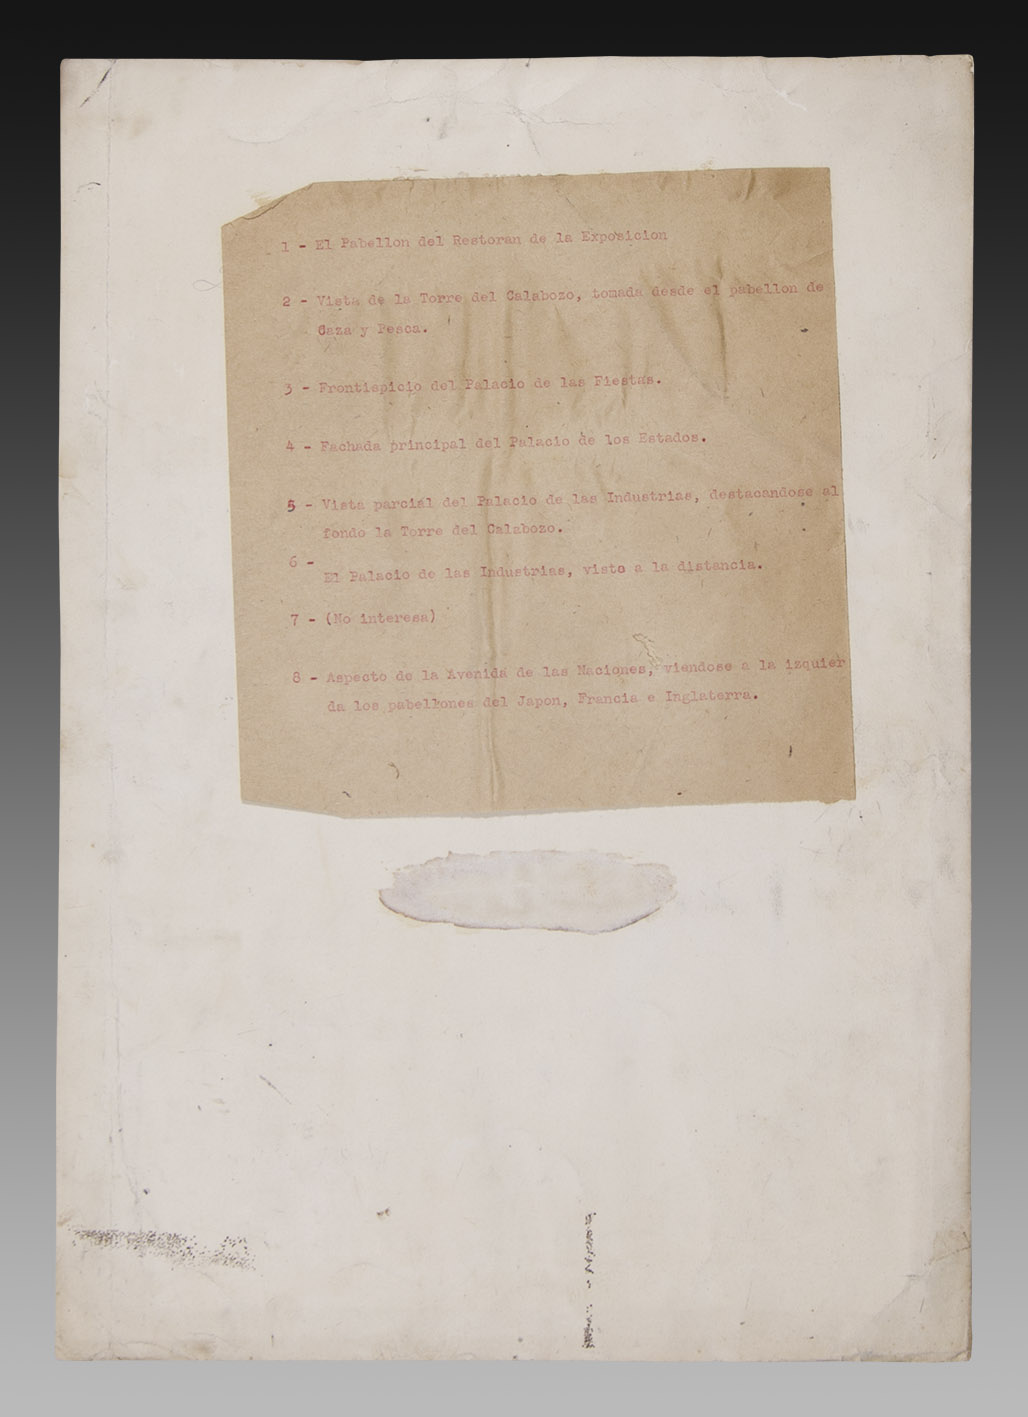 1 - El Pabellon del Restoran de la Exposicion
2 - Vista de la Torre del Calabozo, tomada desde el pabellon de
Caza y Pesca.
3 - Frontispicio del Palacio de las Fiestas.
4 - Fachada principal del Palacio de los Estados.
5 - Vista parcial del Palacio de las Industrias, destacandose al
fondo la Torre del Calabozo.
6 -
El Palacio de las Industrias, visto a la distancia.
7 - (No interesa)
8 - Aspecto de la Avenida de las Naciones, viendose a la izquier
da los pabellones del Japon, Francia e Inglaterra.